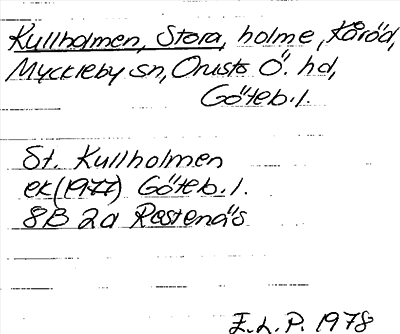 Kullholmen, Stora, holme, Kåröd,
Myckleby sn, Orusts Ö. hd,
Göteb. l.
St. Kullholmen
ek (1977) Göteb. l.
8B 2a Rostenäs
E.L.P. 1978